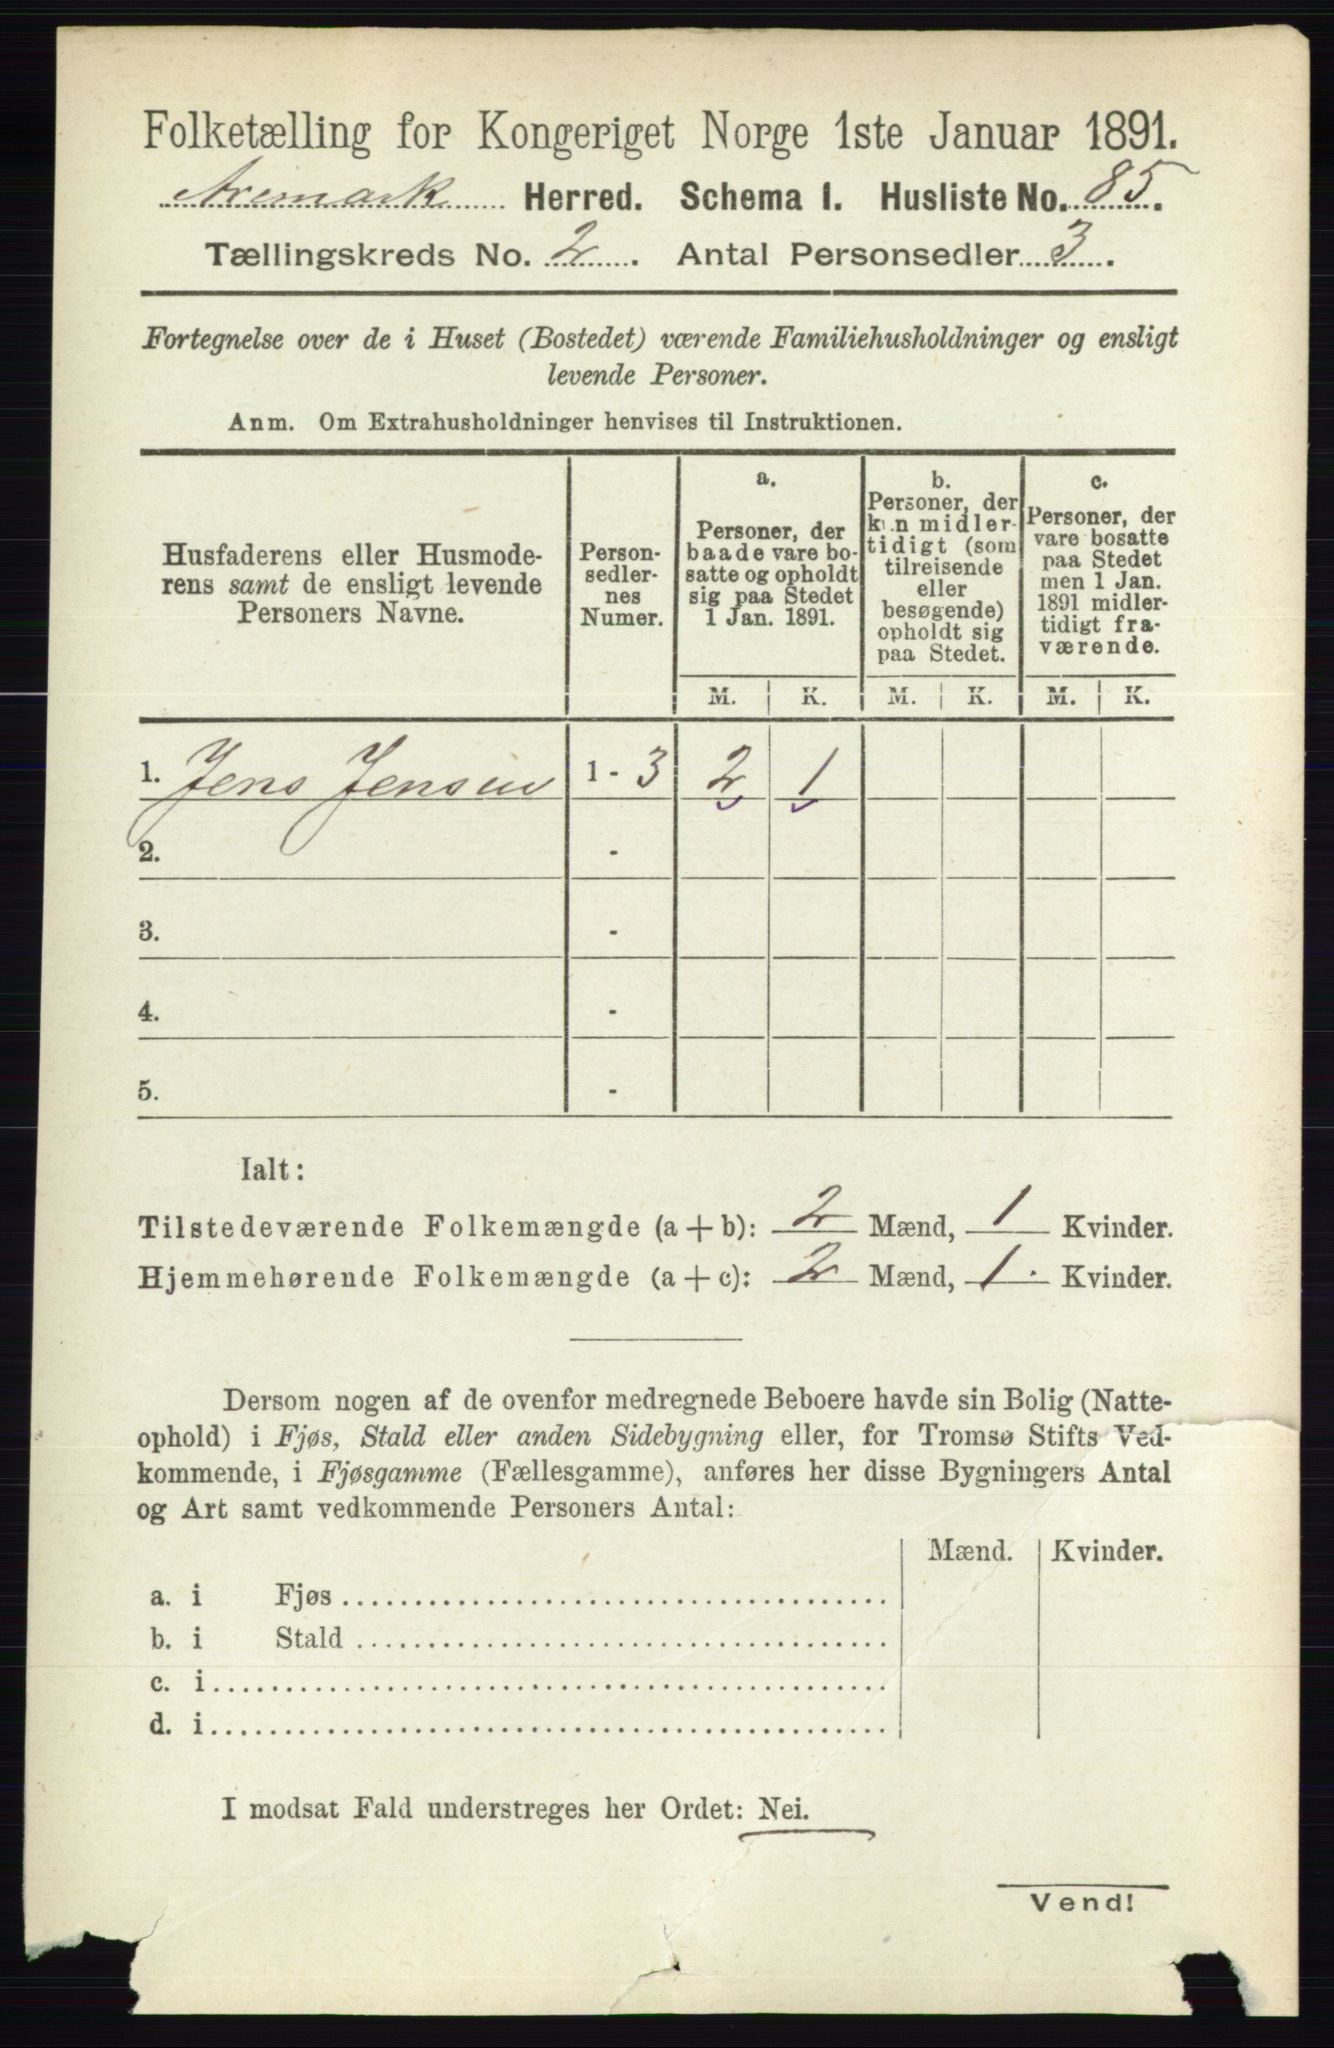 Folketælling for Kongeriget Norge 1ste Januar 1891.
Aremark Herred. Schema I. Husliste No. 85.
Tællingskreds No. 2. Antal Personsedler 3.
Fortegnelse over de i Huset (Bostedet) værende Familiehusholdninger og ensligt
levende Personer.
Anm. Om Extrahusholdninger henvises til Instruktionen.
Husfaderens eller Husmode-
rens samt de ensligt levende
Personers Navne.
Person-
sedler-
nes
Numer.
a.
Personer, der
baade vare bo-
satte og opholdt
sig paa Stedet
1 Jan. 1891.
b.
Personer, der
kun midler-
tidigt (som
tilreisende
eller
besøgende)
opholdt sig
paa Stedet.
c.
Personer, der
vare bosatte
paa Stedet
men 1 Jan.
1891 midler-
tidigt fra-
værende.
M. K. M. K. M. K.
1. Jens Jensen 1 - 3 2 1
2. -
3. -
4. -
5. -
Ialt:
Tilstedeværende Folkemængde (a + b): 2 Mænd, 1 Kvinder.
Hjemmehørende Folkemængde (a + c): 2 Mænd, 1. Kvinder.
Dersom nogen af de ovenfor medregnede Beboere havde sin Bolig (Natte-
ophold) i Fjøs, Stald eller anden Sidebygning eller, for Tromsø Stifts Ved-
kommende, i Fjøsgamme (Fællesgamme), anføres her disse Bygningers Antal
og Art samt vedkommende Personers Antal:
Mænd. Kvinder.
a. i Fjøs
b. i Stald
c. i
d. i
I modsat Fald understreges her Ordet: Nei.
Vend!